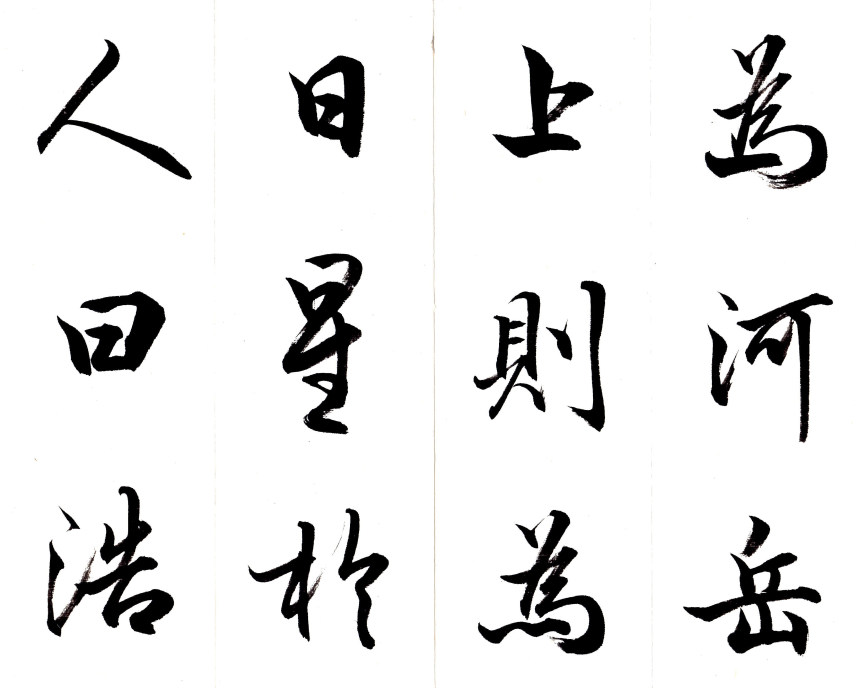 為河岳
上則為
日星於
人曰浩